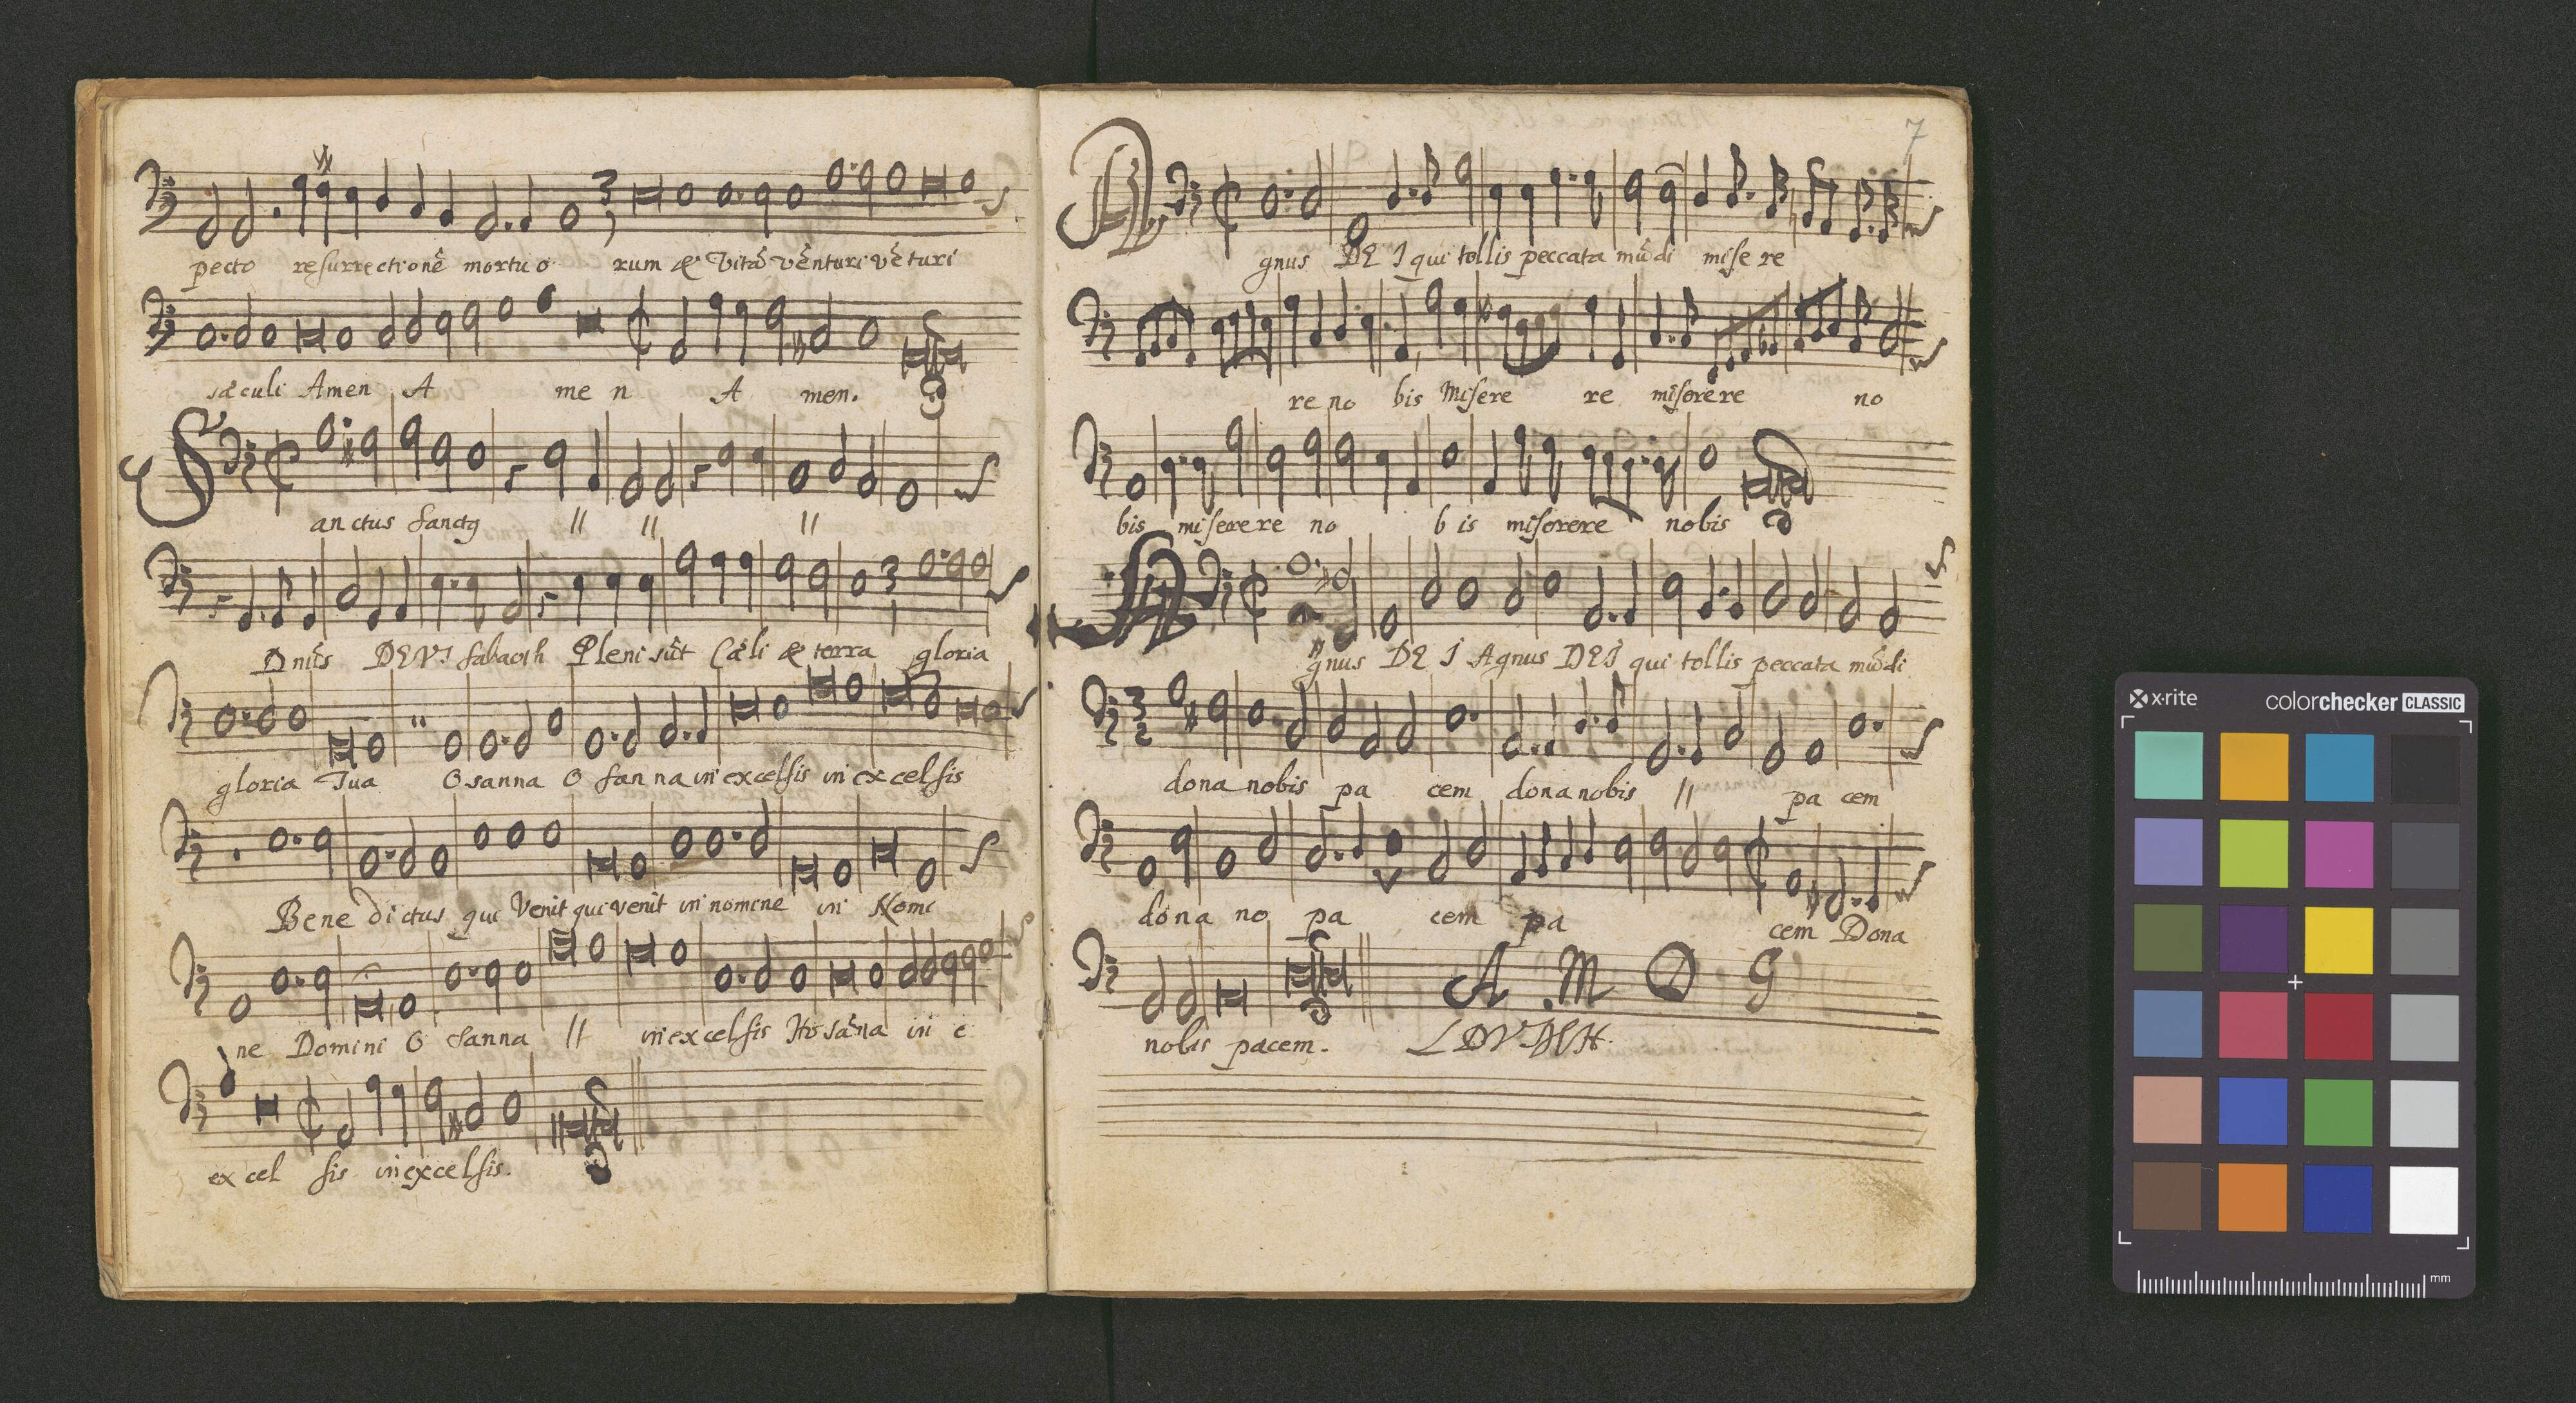 pecto resurrectionē mortuo rum & Vitā vēnturi vēturi
sæculi Amen A me n A men.
Sanctus Sanctꝰ // // //
Dn̄us DEVS Sabaoth Pleni sūt Cæli & terra gloria
gloria Tua O sanna O san na in excelsis in ex celsis
Bene dictus qui Venit qui venit in nomine in Nomi
ne Domini O sanna // in excelsis Ho sāna in e
ex cel sis in excelsis.
7
Agnus DE I qui tollis peccata mūdi mise re
re no bis Misere re miserere no
bis miserere no b is miserere nobis
Agnus DE I Agnus DEI qui tollis peccata mūdi
3 2
dona nobis pa cem dona nobis // pa cem
dona no pa cem pa cem Dona
A M D G
nobis pacem.
x-rite colorchecker CLASSIC
mm